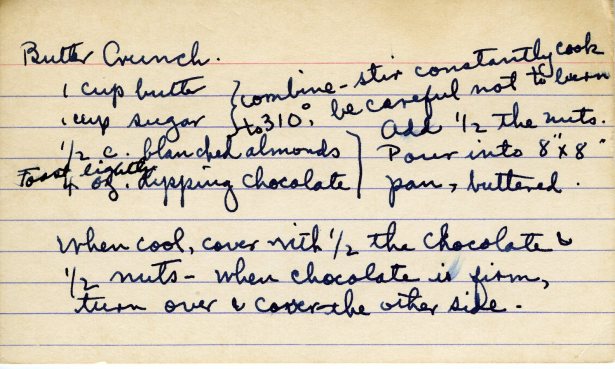 Butter Crunch.
1 cup butter } combine - stir constantly cook
1 cup sugar } to 310°, be careful not to burn
1/2 c. blanched almonds } Add 1/2 the nuts.
Toast lightly
4 oz. dipping chocolate } Pour into 8" x 8"
pan, buttered.
When cool, cover with 1/2 the chocolate &
1/2 nuts - when chocolate is firm,
turn over & cover the other side.